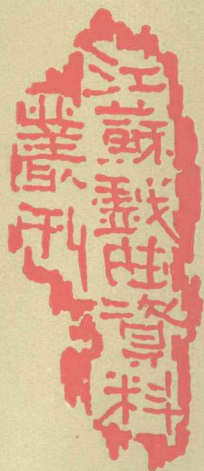 江蘇戲曲資料
叢刊